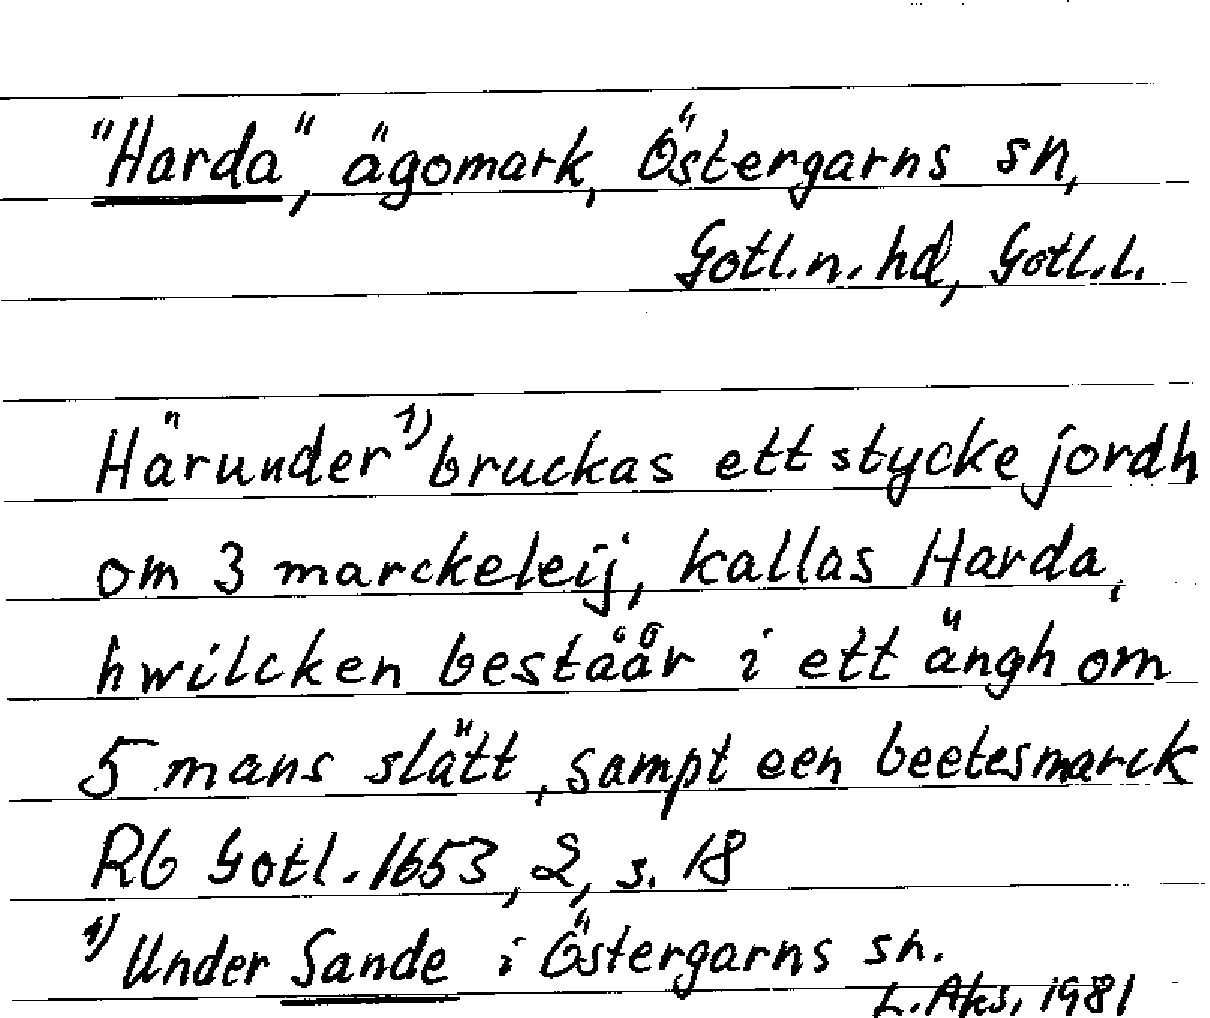 "Harda", ägomark, Östergarns sn,
Gotl.n.hd, Gotl.l.
Härunder¹⁾ bruckas ett stycke jordh
om 3 marckeleij, kallas Harda,
hwilcken beståår i ett ängh om
5 mans slätt, sampt een beetesmarck
Rb Gotl. 1653, 2, s. 18
¹⁾ Under Sande i Östergarns sn.
L. Aks, 1981